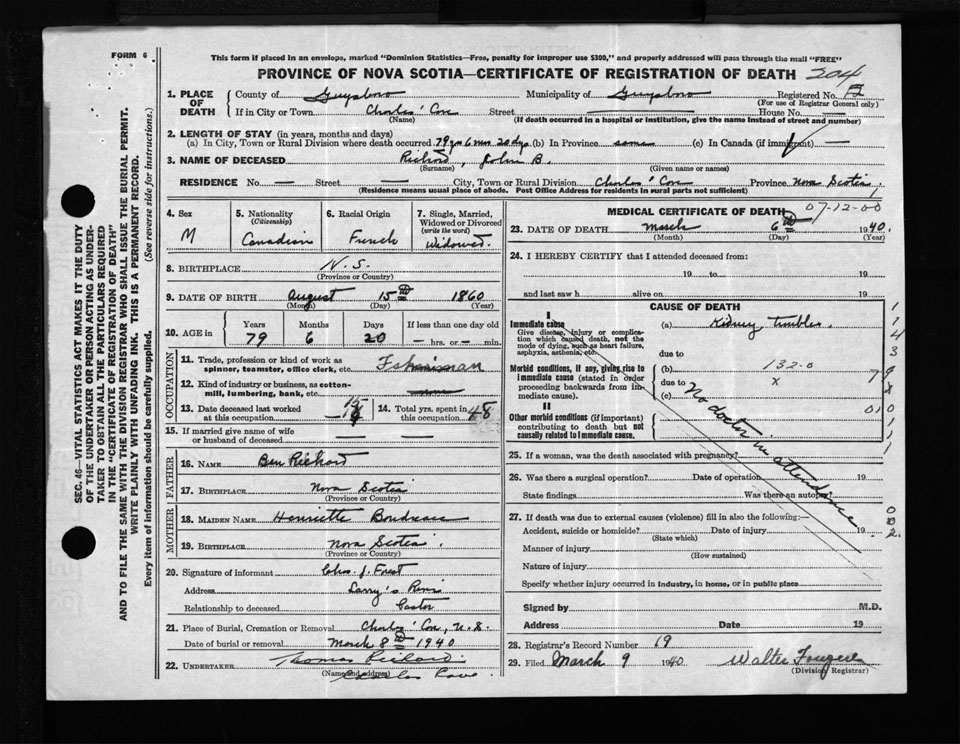 FORM 6
This form if placed in an envelope, marked "Dominion Statistics—Free, penalty for improper use $300," and properly addressed will pass through the mail "FREE"
PROVINCE OF NOVA SCOTIA—CERTIFICATE OF REGISTRATION OF DEATH 204
1. PLACE OF DEATH
County of Guysboro Municipality of Guysboro Registered No.
(For use of Registrar General only)
If in City or Town Charles' Cove Street — House No. —
(Name) (If death occurred in a hospital or institution, give the name instead of street and number)
2. LENGTH OF STAY (in years, months and days)
(a) In City, Town or Rural Division where death occurred 79 yr 6 mos 20 dys (b) In Province same (c) In Canada (if immigrant) —
3. NAME OF DECEASED Richard, John B.
(Surname) (Given name or names)
RESIDENCE No. — Street — City, Town or Rural Division Charles' Cove Province Nova Scotia
(Residence means usual place of abode. Post Office Address for residents in rural parts not sufficient)
4. Sex
M
5. Nationality
(Citizenship)
Canadian
6. Racial Origin
French
7. Single, Married, Widowed or Divorced
(write the word)
Widowed.
8. BIRTHPLACE N.S.
(Province or Country)
9. DATE OF BIRTH August 15th 1860
(Month) (Day) (Year)
10. AGE in
Years Months Days If less than one day
79 6 20 — hrs. or — min.
OCCUPATION
11. Trade, profession or kind of work as spinner, teamster, office clerk, etc.
12. Kind of industry or business, as cotton-mill, lumbering, bank, etc.
13. Date deceased last worked at this occupation
14. Total yrs. spent in this occupation 48
15. If married give name of wife or husband of deceased — —
FATHER
16. NAME Ben Richard
17. BIRTHPLACE Nova Scotia
(Province or Country)
MOTHER
18. MAIDEN NAME Henriette Boudreau
19. BIRTHPLACE Nova Scotia.
(Province or Country)
20. Signature of informant Chas. J. Forest
Address Larry's River
Relationship to deceased Pastor
21. Place of Burial, Cremation or Removal Charles' Cove, N.S.
Date of burial or removal March 8th 1940
22. UNDERTAKER Thomas Richard.
(Name and address)
Charles Cove
MEDICAL CERTIFICATE OF DEATH
07-12-00
23. DATE OF DEATH March 6th 1940.
(Month) (Day) (Year)
24. I HEREBY CERTIFY that I attended deceased from:
19 to 19
and last saw h alive on 19
CAUSE OF DEATH
I
Immediate cause
Give disease, injury or complication which caused death, not the mode of dying, such as heart failure, asphyxia, asthenia, etc.
(a) Kidney troubles.
due to
Morbid conditions, if any, giving rise to immediate cause (stated in order proceeding backwards from immediate cause).
(b) 132-0
due to x
(c)
II
Other morbid conditions (if important) contributing to death but not causally related to immediate cause.
No doctor in attendance
25. If a woman, was the death associated with pregnancy?
26. Was there a surgical operation? Date of operation 19
State findings Was there an autopsy?
27. If death was due to external causes (violence) fill in also the following:—
Accident, suicide or homicide? Date of injury 19
(State which)
Manner of injury
(How sustained)
Nature of injury
Specify whether injury occurred in industry, in home, or in public place
Signed by M.D.
Address Date 19
28. Registrar's Record Number 19
29. Filed March 9 1940 Walter Fougere
(Division Registrar)
SEC. 46—VITAL STATISTICS ACT MAKES IT THE DUTY
OF THE UNDERTAKER OR PERSON ACTING AS UNDER-
TAKER TO OBTAIN ALL THE PARTICULARS REQUIRED
IN THE "CERTIFICATE OF REGISTRATION OF DEATH"
AND TO FILE THE SAME WITH THE DIVISION REGISTRAR WHO SHALL ISSUE THE BURIAL PERMIT.
WRITE PLAINLY WITH UNFADING INK. THIS IS A PERMANENT RECORD.
Every item of information should be carefully supplied. (See reverse side for instructions.)